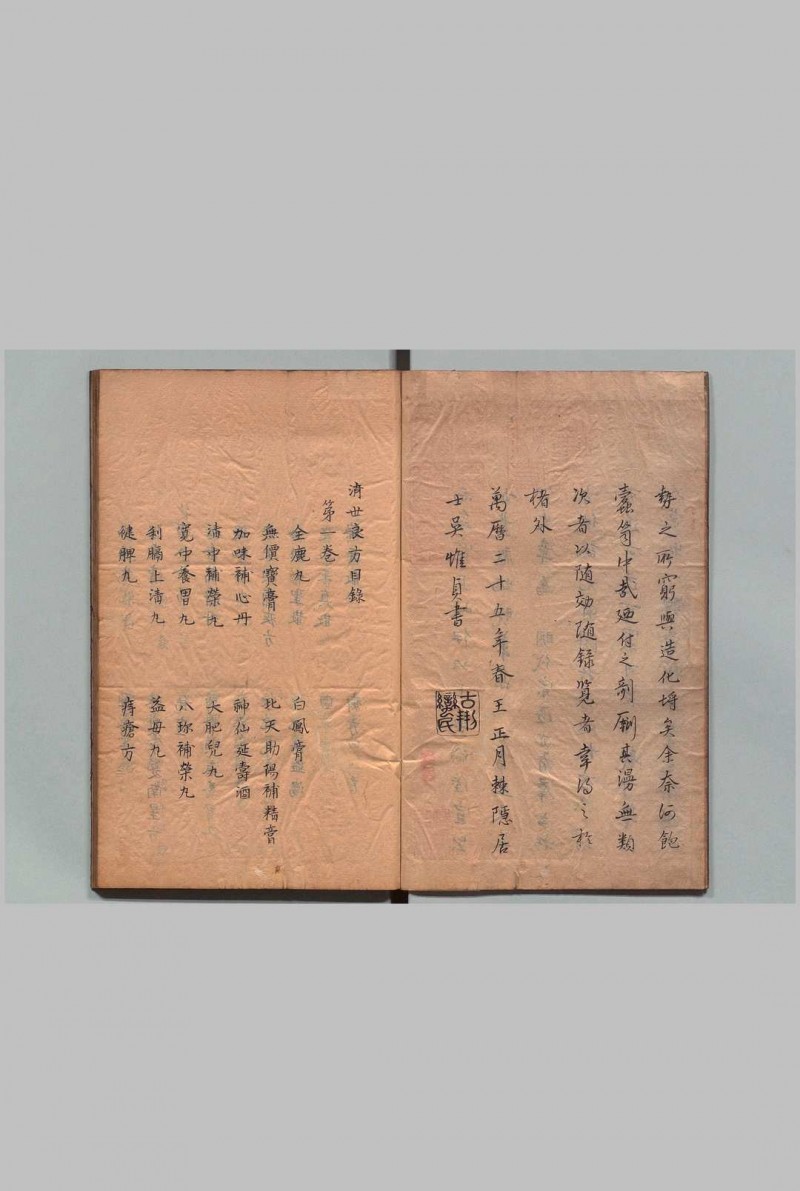 勢之所窮與造化埒矣余奈何飽
蠹笥中哉廼付之剞劂其漫無類
次者以随効随錄覽者幸得之於
楮外
萬曆二十五年春王正月棘隱居
士吳惟貞書
濟世良方目錄
第一卷
全鹿丸 白鳳膏
無價寶膏 比天助陽補精膏
加味補心丹 神仙延壽酒
清中補榮丸 大肥兒丸
寬中養胃丸 八珍補榮丸
利膈上清丸 益母丸
健脾丸 痔瘡方